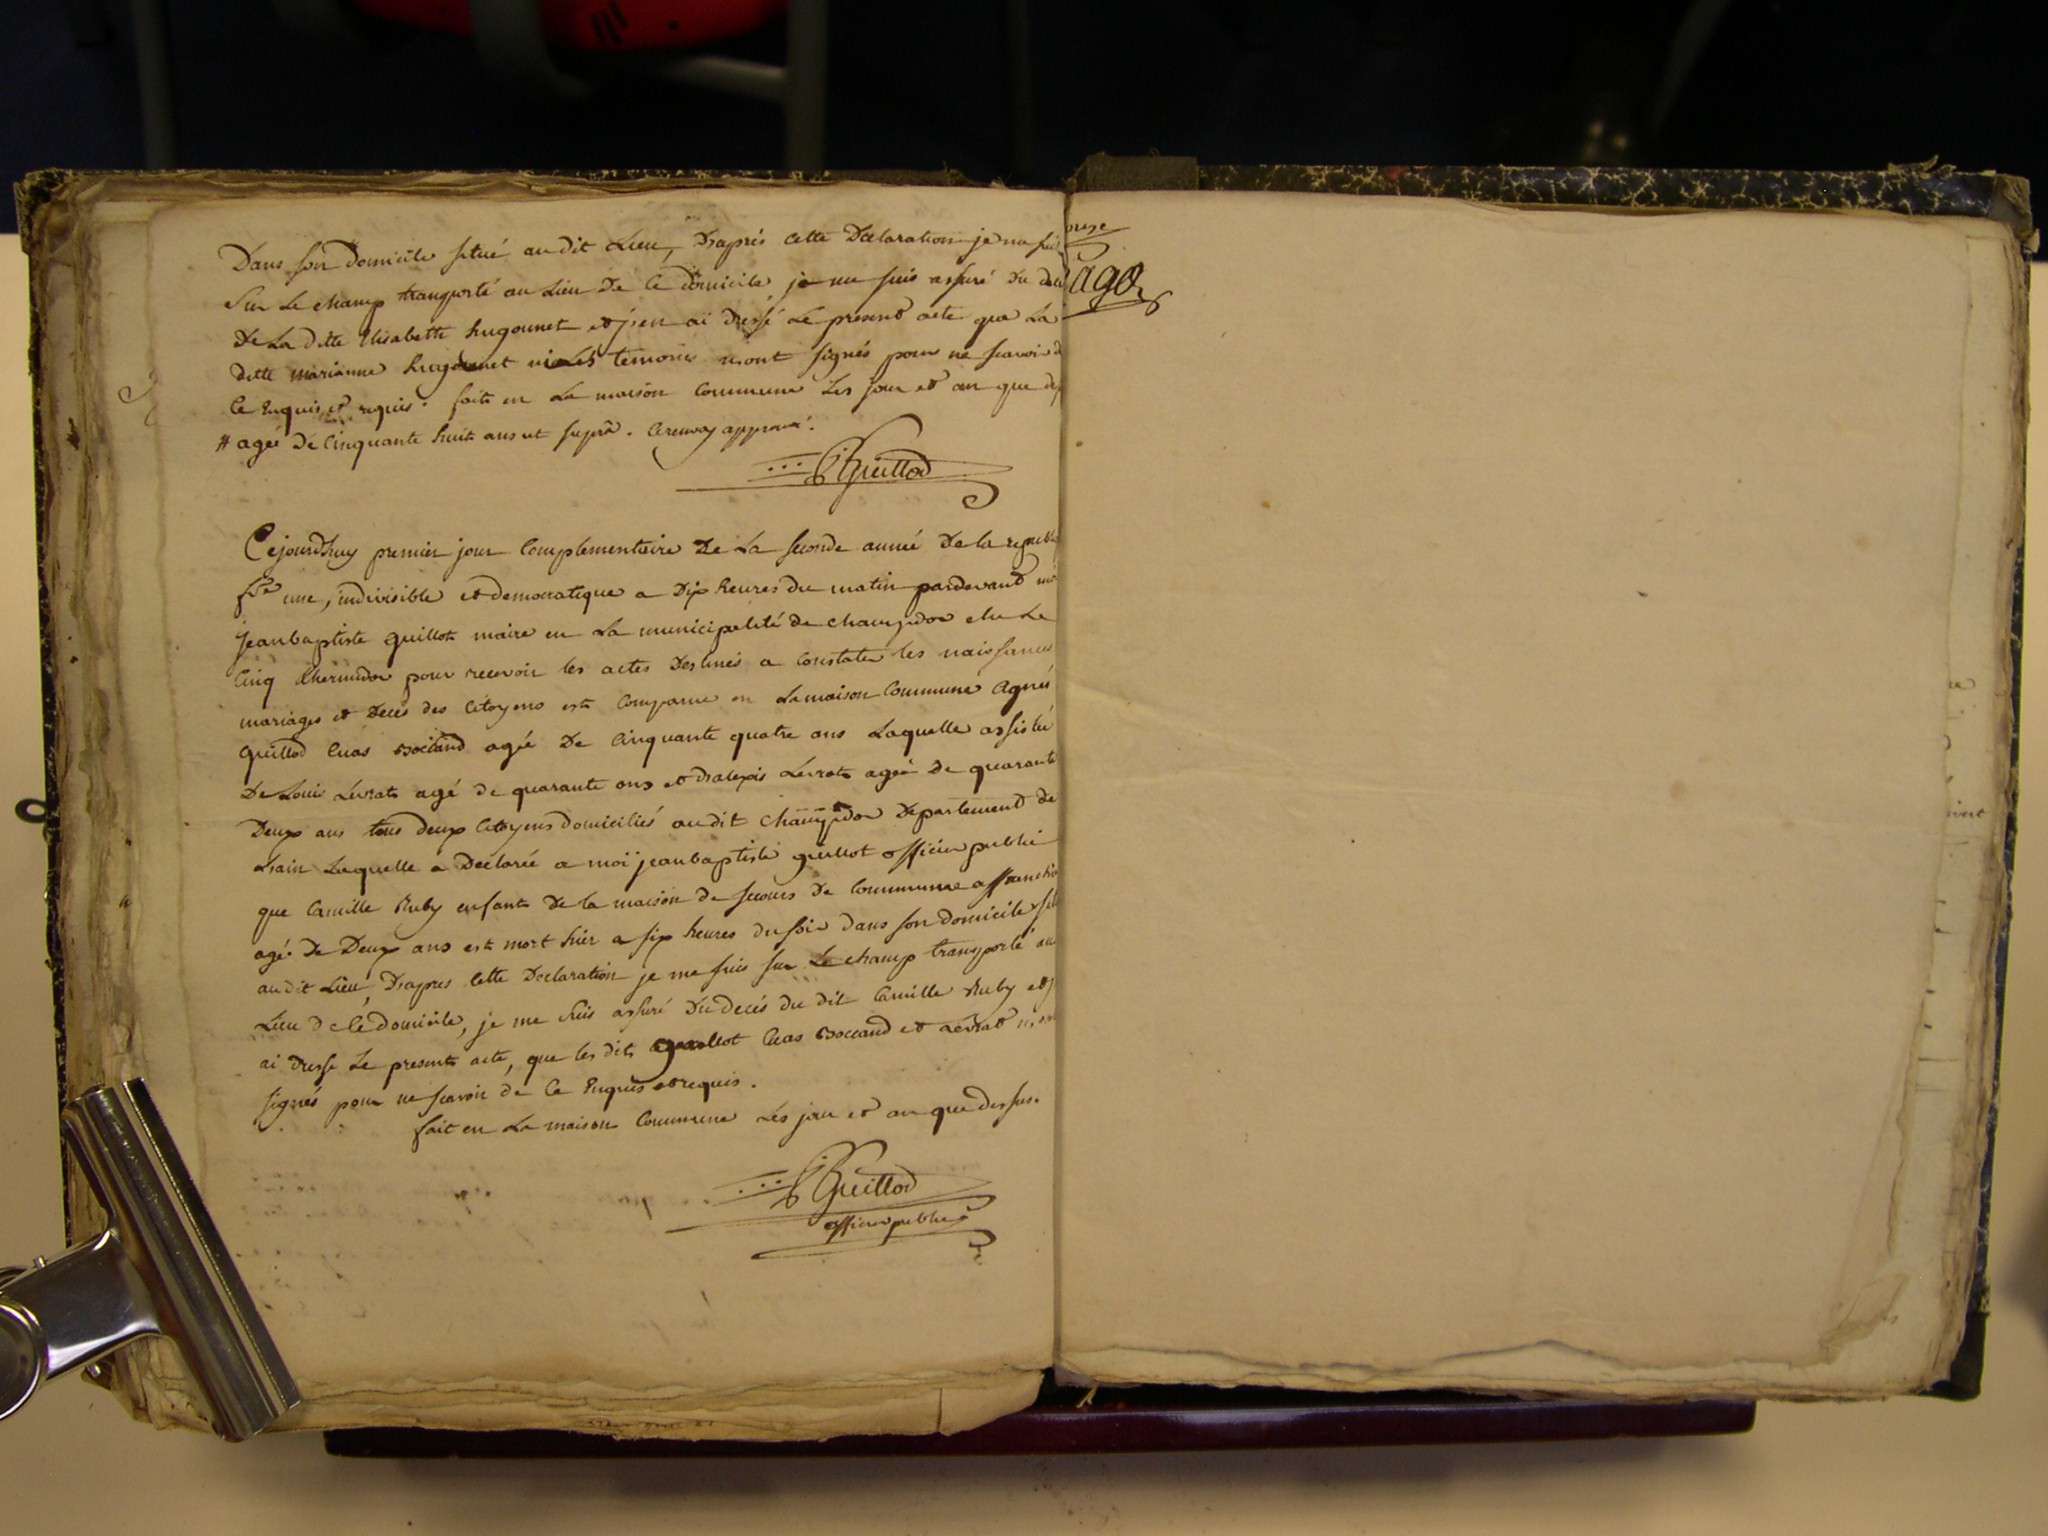 Dans son domicile situé au dit Lieu, D'aprés cette Déclaration je me suis
Sur Le champ transporté au Lieu De Ce domicile je me suis assuré Du
De La ditte Elisabette hugonnet et j'en ai Dressé Le present acte que La
ditte marianne hugonnet ni Les temoins n'ont signés pour ne scavoir
Ce Enquis et requis. fait en La maison Commune Les jour et an que
# agée De Cinquante huit ans ut suprà. Le renvoy approuvé.
Guillod
Cejourdhuy premier jour Complementaire De La seconde année De la
fse une, indivisible et democratique a Dix heures du matin pardevant
jeanbaptiste Guillot maire en La municipalité de champdor elu Le
Cinq thermidor pour recevoir les actes Destinés a Constater les naissances
mariages et Decés des Citoyens est Comparue en La maison Commune Agnés
Guillod agée De Cinquante quatre ans Laquelle assistée
De Louis Levrat agé de quarante ans et d'alexis Levrat agé De quarante
Deux ans tous deux Citoyens domiciliés audit Champdor Departement de
L'ain Laquelle a Declarée a moi jeanbaptiste guillot officier public
que Camille Ruby enfant De la maison de secours De Commune affranchie
agé De Deux ans est mort hier a six heures du soir dans son domicile
audit Lieu, D'apres Cette Declaration je me suis sur Le champ transporté au
Lieu De Ce domicile, je me suis assuré Du decés du dit Camille Ruby et
ai Dressé Le present acte, que les dits guillot et Levrat
signés pour ne scavoir de Ce Enquis et requis.
fait en La maison Commune Les jour et an que dessus.
Guillod
officier public
ago